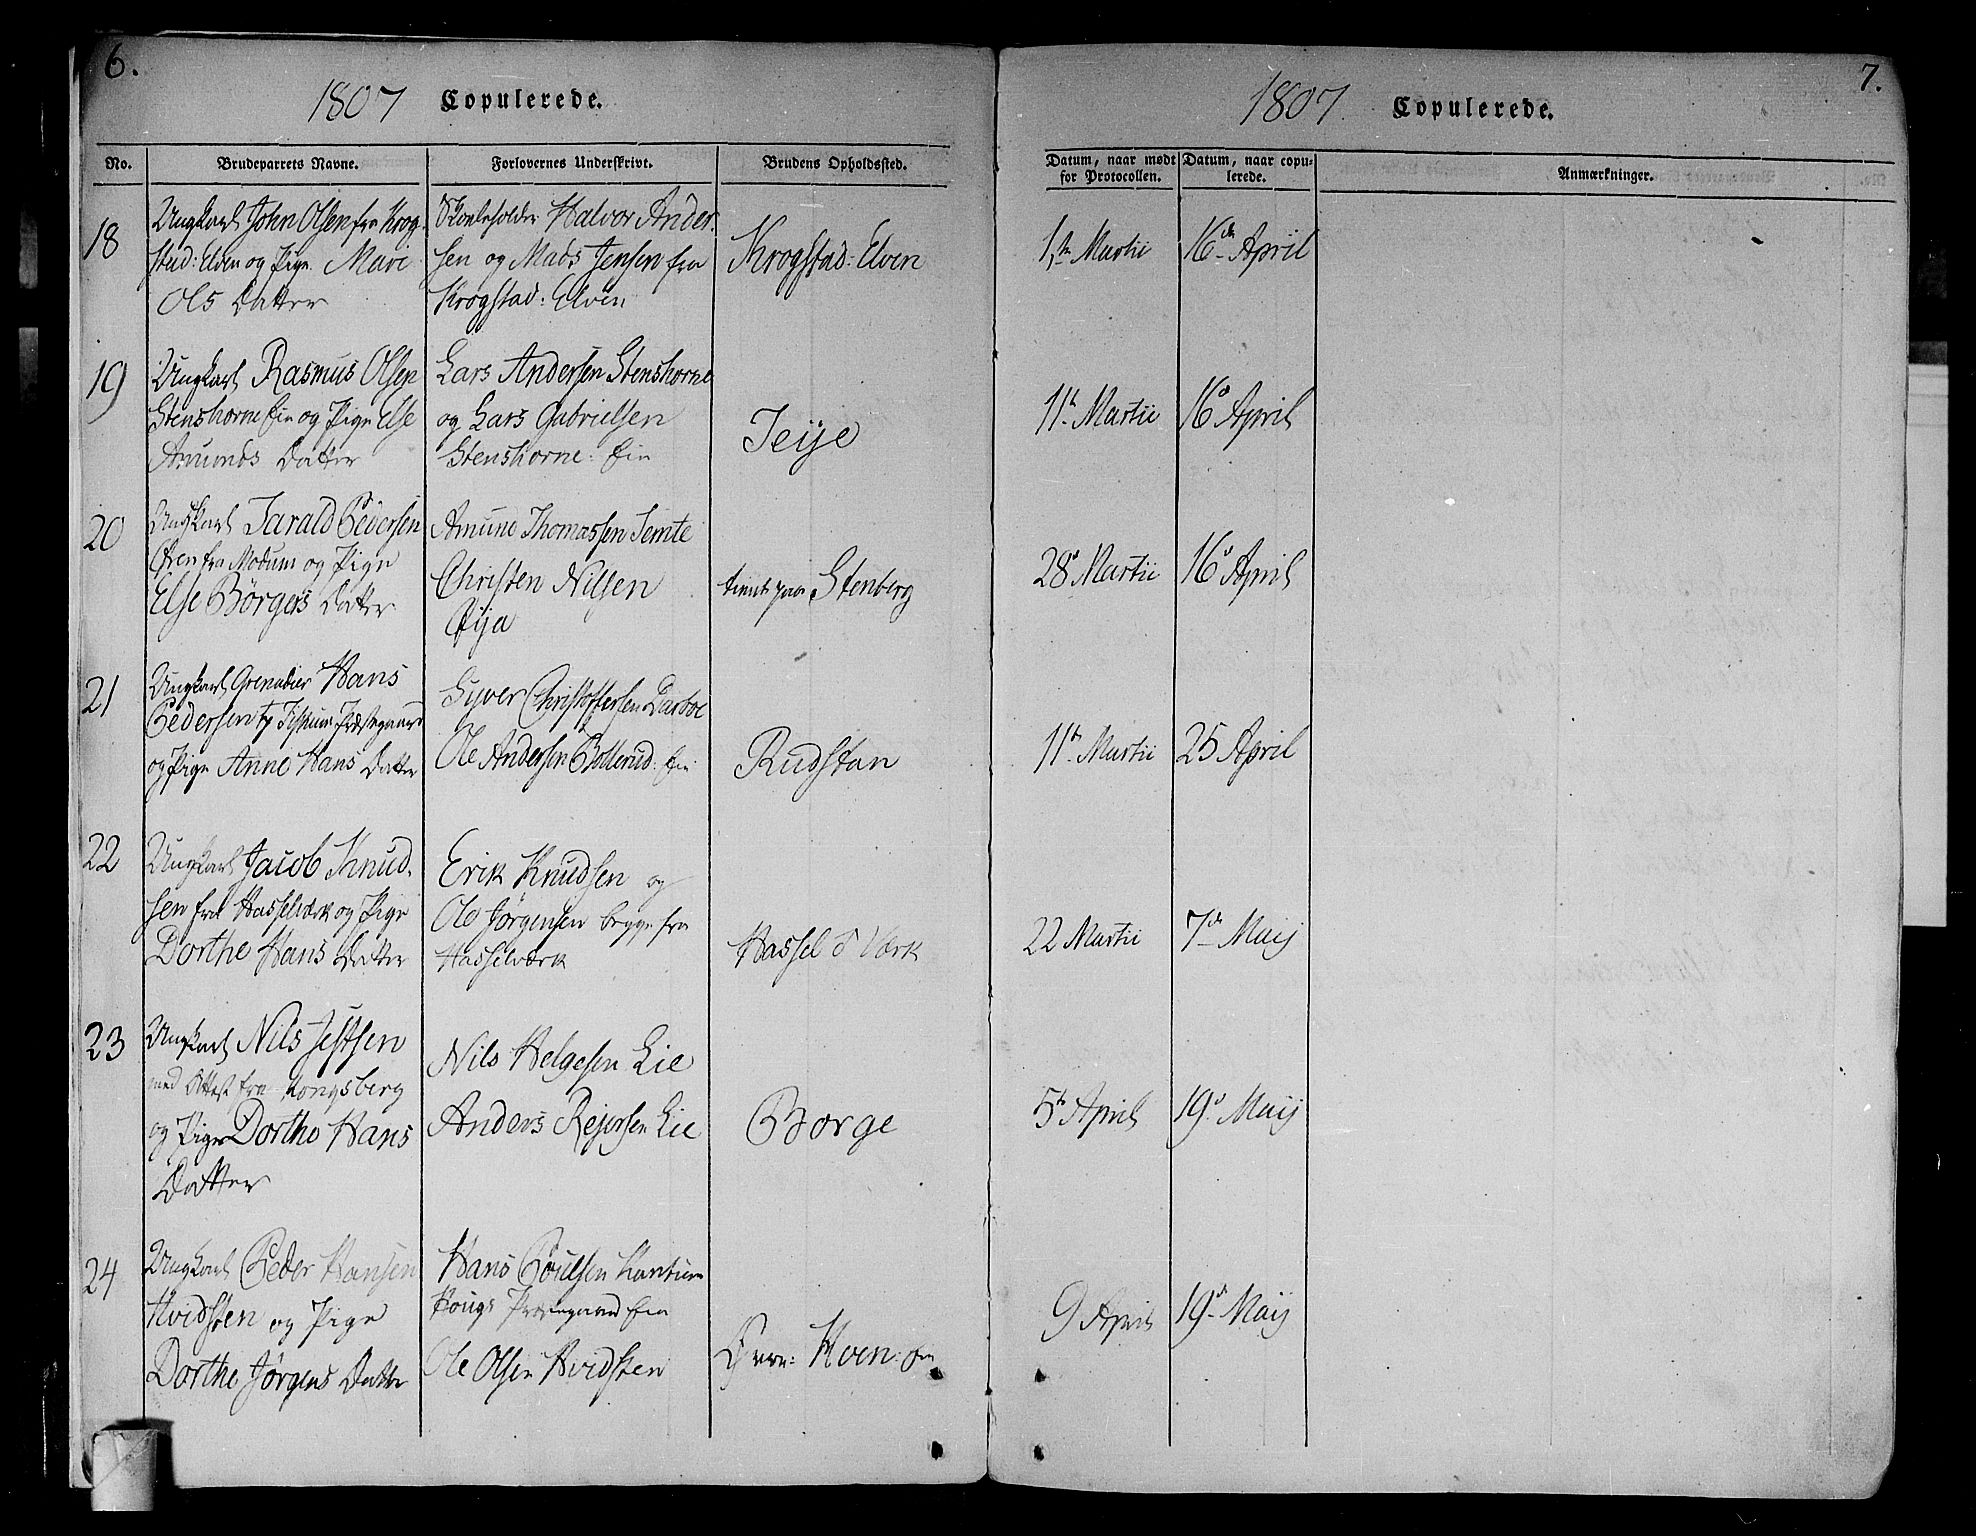 6.
1807 Copulerede.
No.
Brudeparrets Navne.
Forlovernes Underskrivt.
Brudens Opholdssted.
18
Ungkarl John Olsen fra Krog-
stad: Elven og Pige Mari
Ols Datter
Skoleholder Halvor Ander-
sen og Mads Jensen fra
Krogstad: Elven
Krogstad: Elven
19
Ungkarl Rasmus Olsen
Stenshorne Eie og Pige Else
Amunds Datter
Lars Andersen Stenshorne
og Lars Gabrielsen
Stenshorne: Eie
Teije
20
Ungkarl Tarald Pedersen
Øren fra Modum og Pige
Else Börgers Datter
Amund Thomassen Semte
Christen Nilsen
Eija
tient paa Stenberg
21
Ungkarl Grenadier Hans
Pedersen Fiskum Præstegaard
og Pige Anne Hans Datter
Syver Christoffersen Darboe
Ole Andersen Bollerud: Eie
Rudstan
22
Ungkarl Jacob Knud-
sen fra Hasselværk og Pige
Dorthe Hans Datter
Erik Knudsen og
Ole Jörgensen begge fra
Hasselværk
Hassel Værk
23
Ungkarl Nils Jestsen
med Attest fra Kongsberg
og Pige Dorthe Hans
Datter
Nils Helgesen Lie
Anders Rejersen Lie
Borge
24
Ungkarl Peder Hansen
Hvidsten og Pige
Dorthe Jörgens Datter
Hans Poulsen
Præstegaard Eie
Ole Olsen Hvidsten
Øvre: Hoen: Eie
7.
1807. Copulerede.
Datum, naar mødt
for Protocollen.
Datum, naar copu-
lerede.
Anmærkninger.
1te Martii 16de April
11te Martii 16d April
28d Martii 16d April
11te Martii 25 April
22 Martii 7de Maij
5te April 19d Maij
9 April 19de Maij